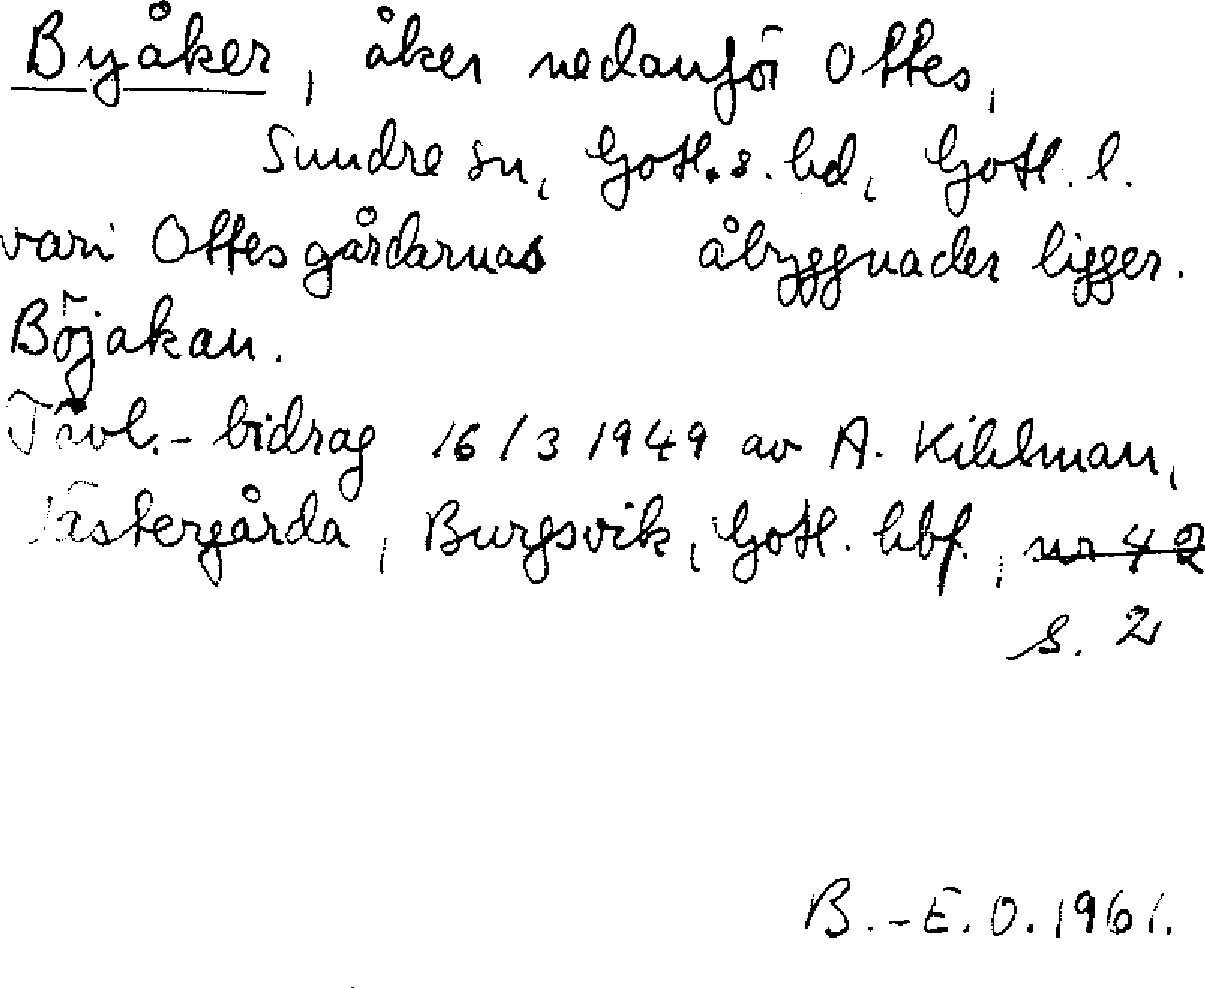 Byåker, åker nedanför Ottes,
Sundre sn, Gotl. s. hd, Gotl. l.
vari Ottesgårdarnas åbyggnader ligger.
Böjakan.
Tävl.-bidrag 16/3 1949 av A. Kihlman,
Västergårda, Burgsvik, Gotl. hbf., nr 42
s. 2
B.-E. O. 1961.